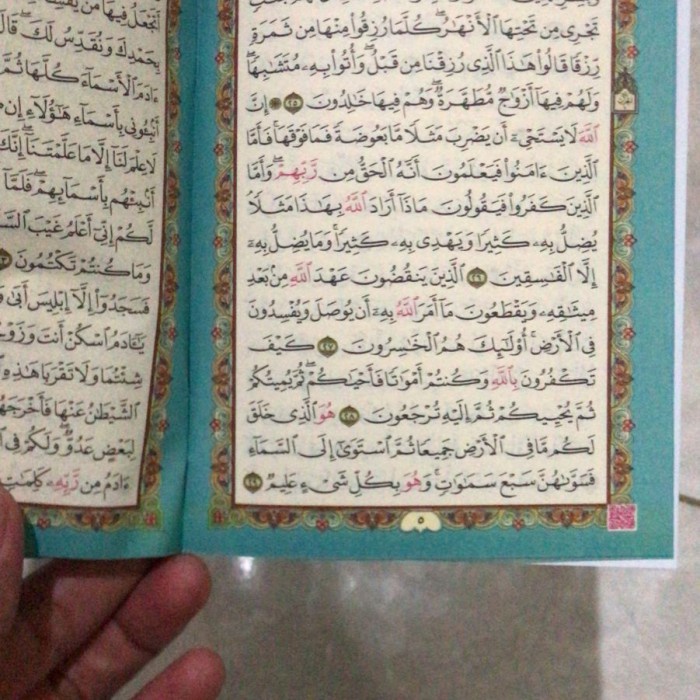 تَجْرِى مِن تَحْتِهَا ٱلْأَنْهَٰرُ ۖ كُلَّمَا رُزِقُوا۟ مِنْهَا مِن ثَمَرَةٍ
رِّزْقًا قَالُوا۟ هَٰذَا ٱلَّذِى رُزِقْنَا مِن قَبْلُ ۖ وَأُتُوا۟ بِهِۦ مُتَشَٰبِهًا ۖ
وَلَهُمْ فِيهَآ أَزْوَٰجٌ مُّطَهَّرَةٌ ۖ وَهُمْ فِيهَا خَٰلِدُونَ ٢٥ ۞ إِنَّ
ٱللَّهَ لَا يَسْتَحْىِۦٓ أَن يَضْرِبَ مَثَلًا مَّا بَعُوضَةً فَمَا فَوْقَهَا ۚ فَأَمَّا
ٱلَّذِينَ ءَامَنُوا۟ فَيَعْلَمُونَ أَنَّهُ ٱلْحَقُّ مِن رَّبِّهِمْ ۖ وَأَمَّا
ٱلَّذِينَ كَفَرُوا۟ فَيَقُولُونَ مَاذَآ أَرَادَ ٱللَّهُ بِهَٰذَا مَثَلًا ۘ
يُضِلُّ بِهِۦ كَثِيرًا وَيَهْدِى بِهِۦ كَثِيرًا ۚ وَمَا يُضِلُّ بِهِۦٓ
إِلَّا ٱلْفَٰسِقِينَ ٢٦ ٱلَّذِينَ يَنقُضُونَ عَهْدَ ٱللَّهِ مِنۢ بَعْدِ
مِيثَٰقِهِۦ وَيَقْطَعُونَ مَآ أَمَرَ ٱللَّهُ بِهِۦٓ أَن يُوصَلَ وَيُفْسِدُونَ
فِى ٱلْأَرْضِ ۚ أُو۟لَٰٓئِكَ هُمُ ٱلْخَٰسِرُونَ ٢٧ كَيْفَ
تَكْفُرُونَ بِٱللَّهِ وَكُنتُمْ أَمْوَٰتًا فَأَحْيَٰكُمْ ۖ ثُمَّ يُمِيتُكُمْ
ثُمَّ يُحْيِيكُمْ ثُمَّ إِلَيْهِ تُرْجَعُونَ ٢٨ هُوَ ٱلَّذِى خَلَقَ
لَكُم مَّا فِى ٱلْأَرْضِ جَمِيعًا ثُمَّ ٱسْتَوَىٰٓ إِلَى ٱلسَّمَآءِ
فَسَوَّىٰهُنَّ سَبْعَ سَمَٰوَٰتٍ ۚ وَهُوَ بِكُلِّ شَىْءٍ عَلِيمٌ ٢٩
٥
بِحَمْدِكَ وَنُقَدِّسُ لَكَ ۖ قَالَ
ءَادَمَ ٱلْأَسْمَآءَ كُلَّهَا ثُمَّ
أَنۢبِـُٔونِى بِأَسْمَآءِ هَٰٓؤُلَآءِ إِن
لَا عِلْمَ لَنَآ إِلَّا مَا عَلَّمْتَنَآ ۖ إِنَّكَ
أَنۢبِئْهُم بِأَسْمَآئِهِمْ ۖ فَلَمَّآ
لَّكُمْ إِنِّىٓ أَعْلَمُ غَيْبَ
وَمَا كُنتُمْ تَكْتُمُونَ
فَسَجَدُوٓا۟ إِلَّآ إِبْلِيسَ أَبَىٰ
يَٰٓـَٔادَمُ ٱسْكُنْ أَنتَ
شِئْتُمَا وَلَا تَقْرَبَا هَٰذِهِ
ٱلشَّيْطَٰنُ عَنْهَا
لِبَعْضٍ عَدُوٌّ ۖ وَلَكُمْ فِى
ءَادَمُ مِن رَّبِّهِۦ كَلِمَٰتٍ